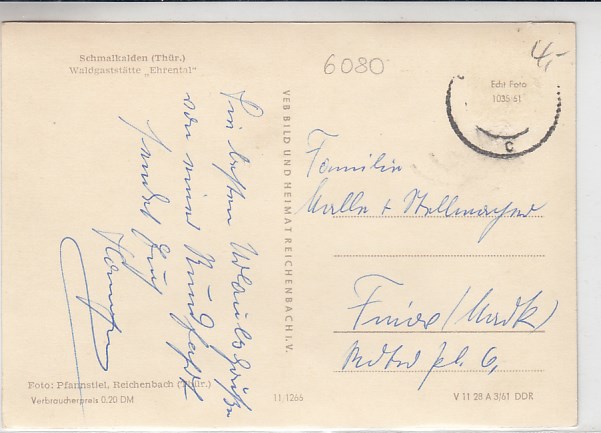 Schmalkalden (Thür.)
Waldgaststätte „Ehrental“
6080
4,-
Echt Foto
1035/61
C
Die besten Urlaubsgrüße
von einer Rundfahrt
sendet Euch
VEB BILD UND HEIMAT REICHENBACH I. V.
Familie
Malle + Stellmacher
(Mark)
6,
Foto: Pfannstiel, Reichenbach (Thür.)
Verbraucherpreis 0.20 DM
11/1266
V 11 28 A 3/61 DDR